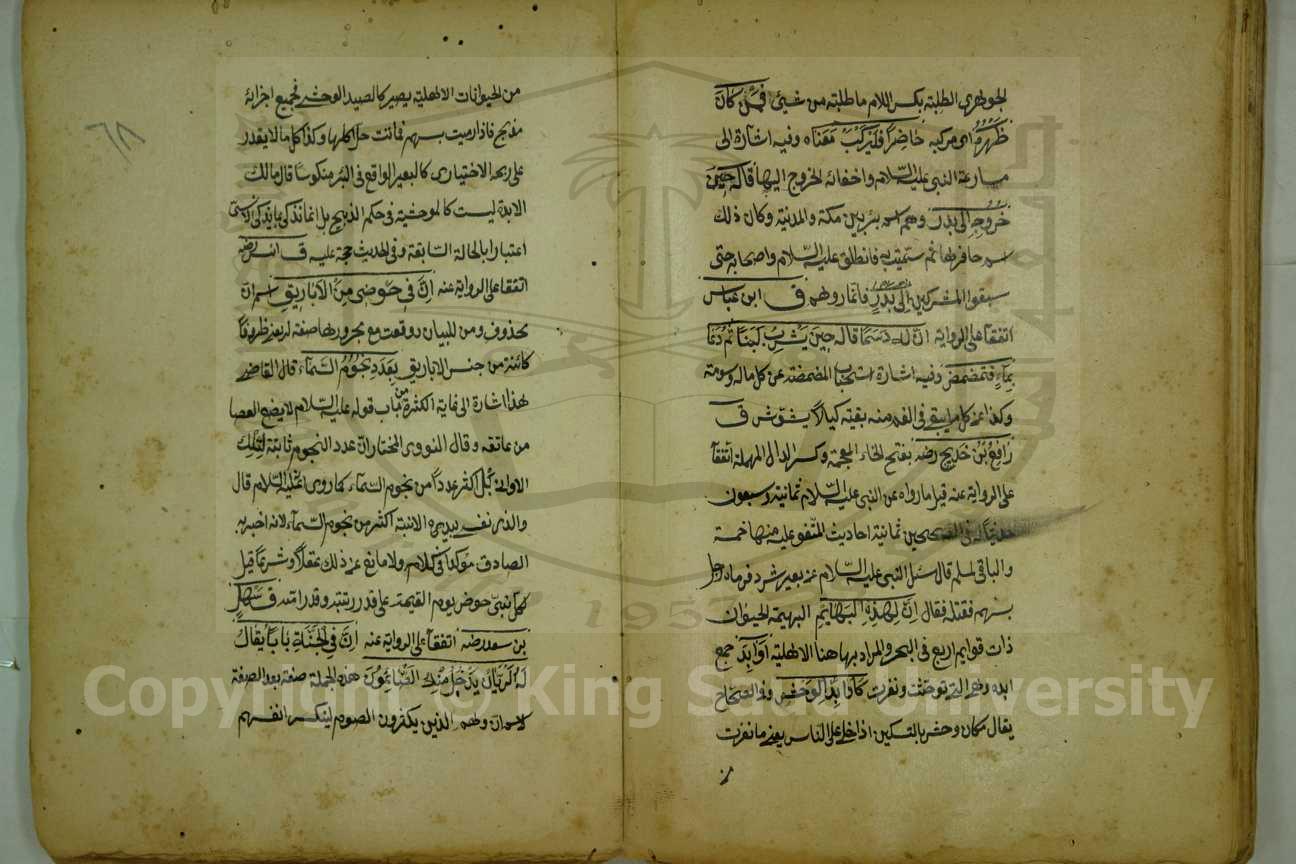 الجوهري الطلبة بكسر اللام ما طلبته من شيئ فمن كان
ظهره اى مركبه حاضرا فليركب معناه وفيه اشارة الى
مبارعة النبي عليه السلام واخفائه الخروج اليها قاله حين
خروجه الى بدر وهم اسم بئر بين مكة والمدينة وكان ذلك
اسم حافرها ثم سميت به فانطلق عليه السلام واصحابه حتى
سبقوا المشركين الى بدر ق ابن عباس
اتفقا على الرواية ان له دسما قاله حين يشرب لبنا ثم دعا
بماء فتمضمض وفيه اشارة استحباب المضمضة عن كل ماله دسومة
وكذا عن كل ما يبقى في الفم منه بقية كيلا يشوش ق
رافع بن خديج رضه بفتح الخاء المعجمة وكسر الدال المهملة اتفقا
على الرواية عنه قيل ما رواه عن النبي عليه السلام ثمانية وسبعون
حديثا له في الصحيحين ثمانية احاديث المتفق عليه منها خمسة
والباقي لمسلم قال سئل النبي عليه السلام عن بعير شرد فرماه رجل
بسهم فقتله فقال ان لهذه البهائم البهيمة الحيوان
ذات قوايم اربع في البحر والمراد بها هنا الاهلية اوابد جمع
ابده وهي التي توحشت ونفرت كاوابد الوحش وفي الصحاح
يقال مكان وحش بالتسكين اذا خلى عن الناس يعني ما نفرت
من الحيوانات الاهلية يصير كالصيد الوحشي فجميع اجزائه
مذبح فاذا رميت بسهم فماتت حل اكلها وكذا كل ما لا يقدر
على ذبحه الاختيارى كالبعير الواقع في البئر منكوسا قال مالك
الابدة ليست كالوحشية في حكم الذبح بل انما تذكى بما يذكى الانسي
اعتبارا بالحالة السابقة وفي الحديث حجة عليه ق انس رضه
اتفقا على الرواية عنه ان في حوضي من الاباريق اسم ان
محذوف ومن للبيان وقعت مع مجرورها صفة له بعد ظروفا
كائنة من جنس الاباريق بعدد نجوم السماء قال القاضي
هذا اشارة الى غاية الكثرة من باب قوله عليه السلام لا يضع العصا
من عاتقه وقال النووى المختار ان عدد النجوم ثابتة لتلك
الاواني بل اكثر عددا من نجوم السماء كما روى انه عليه السلام قال
والذى نفسي بيده الانية اكثر من نجوم السماء لانه اخبر به
الصادق مؤكدا في كلام ولا مانع عن ذلك عقلا وشرعا قيل
لكل نبي حوض يوم القيمة على قدر رتبته وقدر امته ق سهل
بن سعد رضه اتفقا على الرواية عنه ان في الجنة بابا يقال
له الريان يدخل منه الصائمون هذه الجملة صفة بعد الصفة
لاسم ان وهم الذين يكثرون الصوم ليكسر انفسهم
٦٨